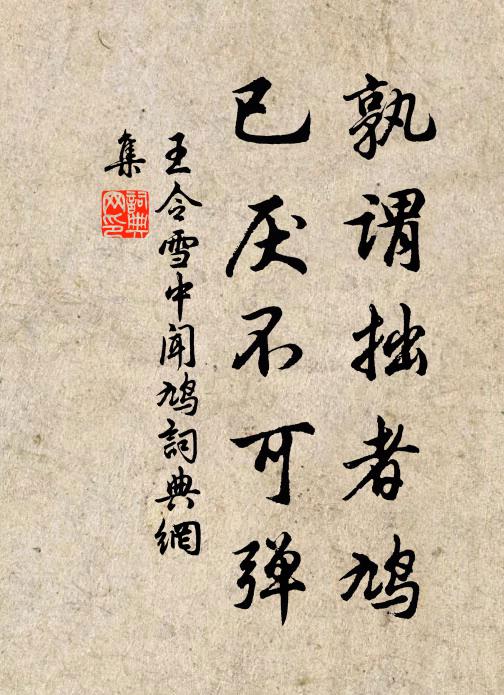 孰谓拙者鸠
已厌不可弹
王令雪中闻鸠詞典網
集
詞典
网印